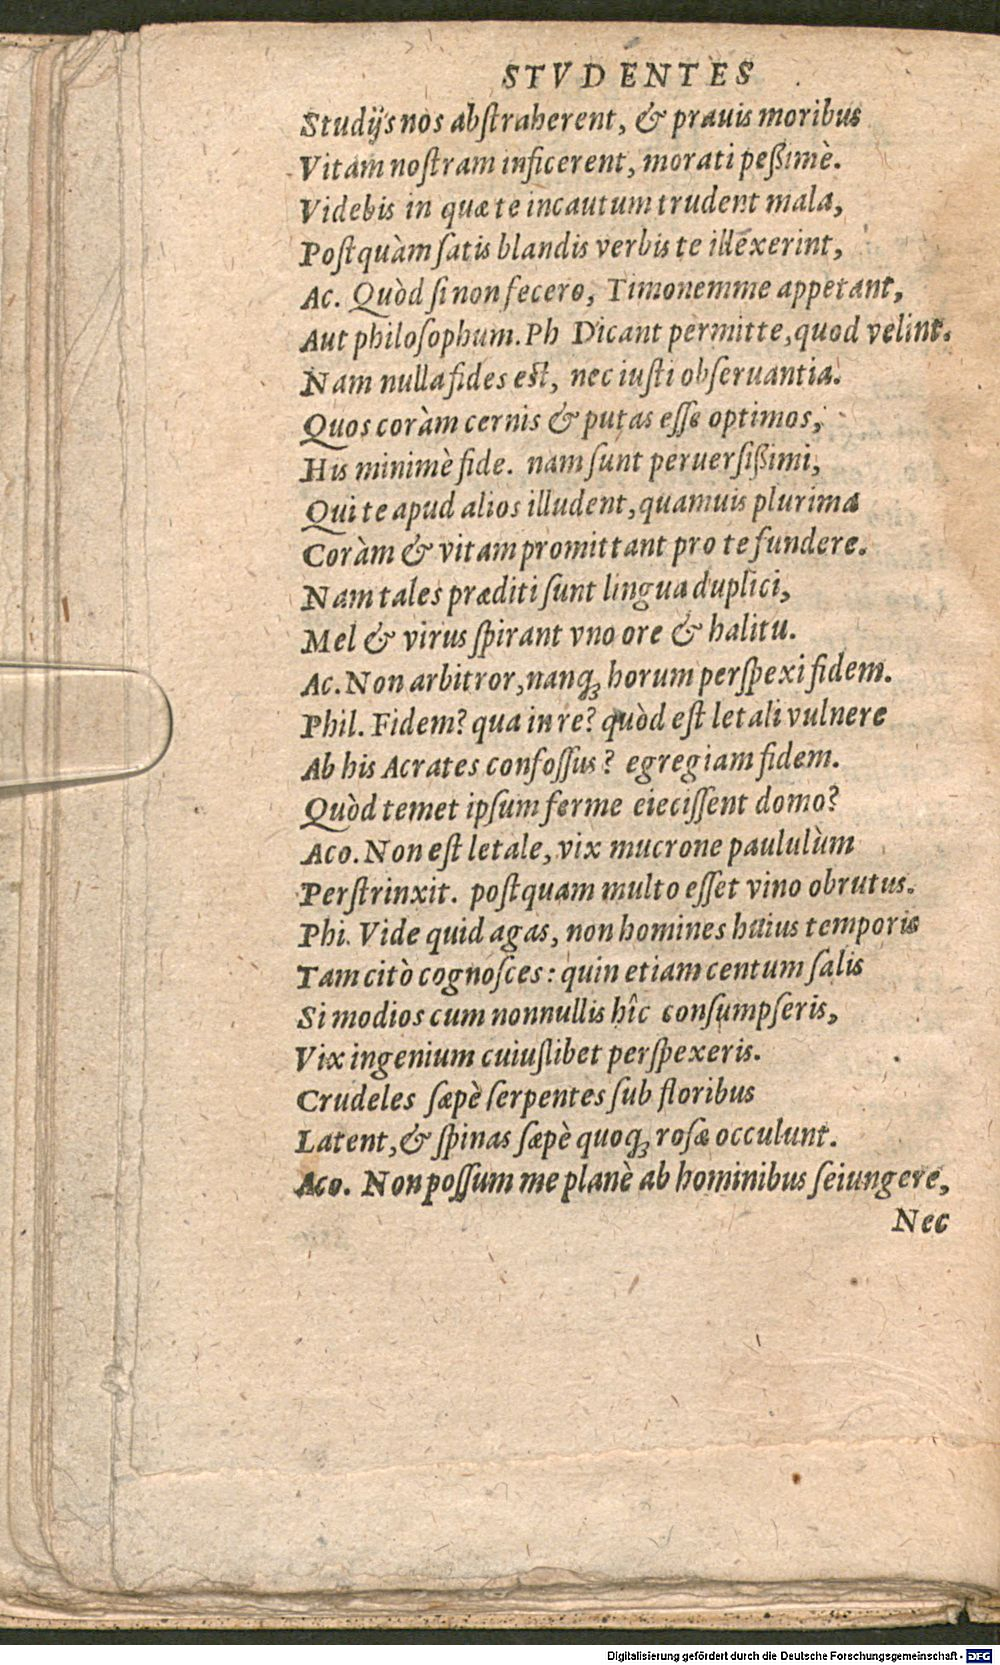 STVDENTES
Studijs nos abſtraherent, & prauis moribus
Vitam noſtram inficerent, morati peßimè.
Videbis in quæ te incautum trudent mala,
Poſtquàm ſatis blandis verbis te illexerint,
Ac. Quòd ſi non fecero, Timonem me appetant,
Aut philoſophum. Ph Dicant permitte, quod velint.
Nam nulla fides eſt, nec iuſti obſeruantia.
Quos coràm cernis & putas eſſe optimos,
His minimè fide. nam ſunt peruerſißimi,
Qui te apud alios illudent, quamuis plurima
Coràm & vitam promittant pro te fundere.
Nam tales præditi ſunt lingua duplici,
Mel & virus ſpirant vno ore & halitu.
Ac. Non arbitror, nanq; horum perſpexi fidem.
Phil. Fidem? qua in re? quòd eſt letali vulnere
Ab his Acrates confoſſus? egregiam fidem.
Quòd temet ipſum ferme eieciſſent domo?
Aco. Non eſt letale, vix mucrone paululùm
Perſtrinxit. poſtquam multo eſſet vino obrutus.
Phi. Vide quid agas, non homines huius temporis
Tam citò cognoſces: quin etiam centum ſalis
Si modios cum nonnullis hîc conſumpſeris,
Vix ingenium cuiuſlibet perſpexeris.
Crudeles ſæpè ſerpentes ſub floribus
Latent, & ſpinas ſæpè quoq; roſæ occulunt.
Aco. Non poſſum me planè ab hominibus ſeiungere,
Nec
Digitalisierung gefördert durch die Deutsche Forschungsgemeinschaft - DFG